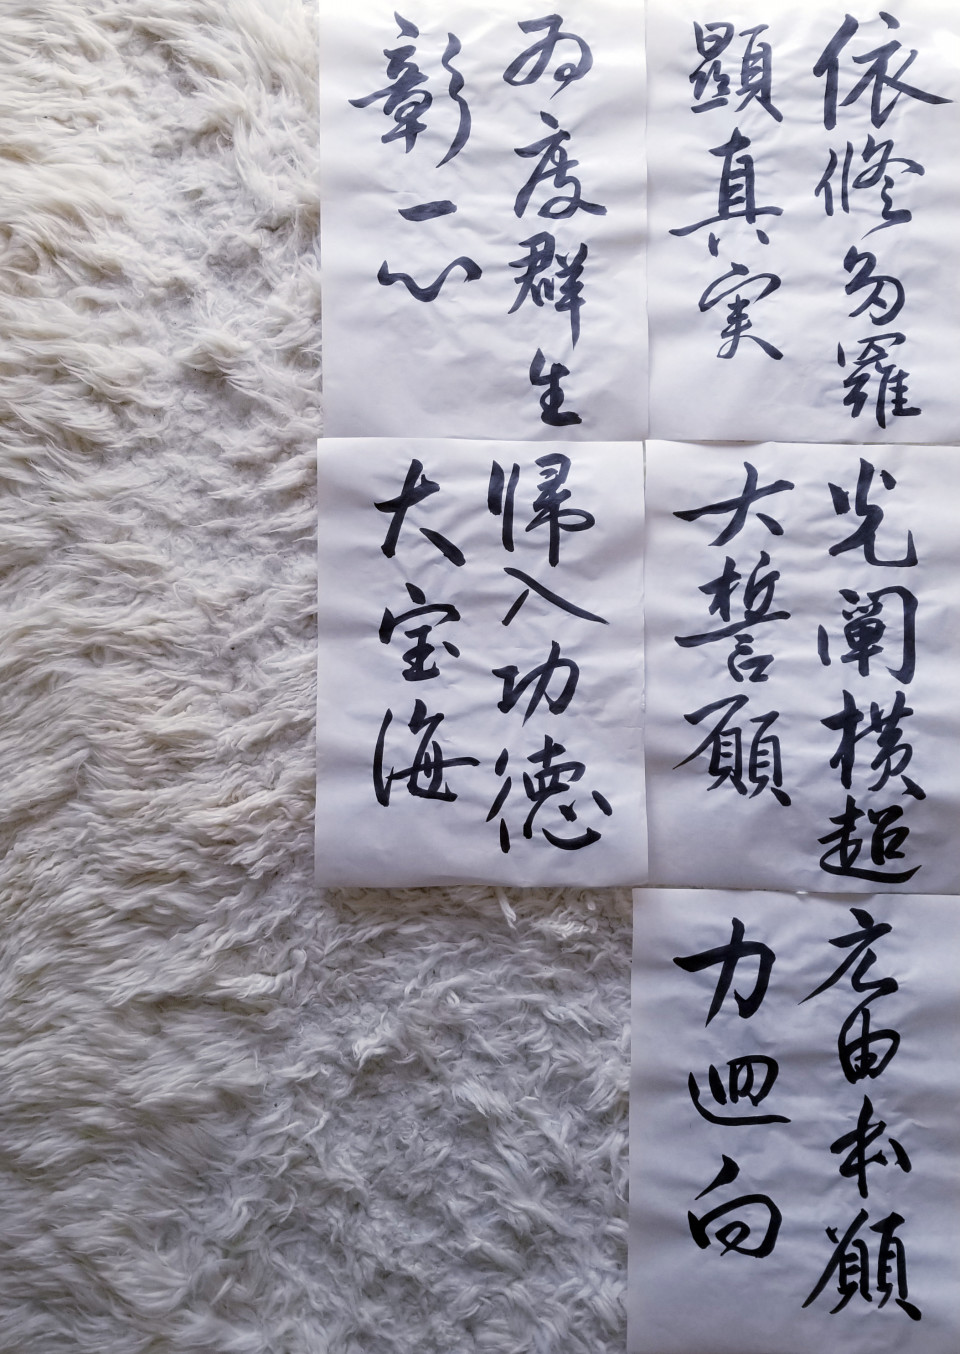 依修多羅
顯真実
光闡横超
大誓願
広由本願
力迴向
為度群生
彰一心
帰入功徳
大宝海